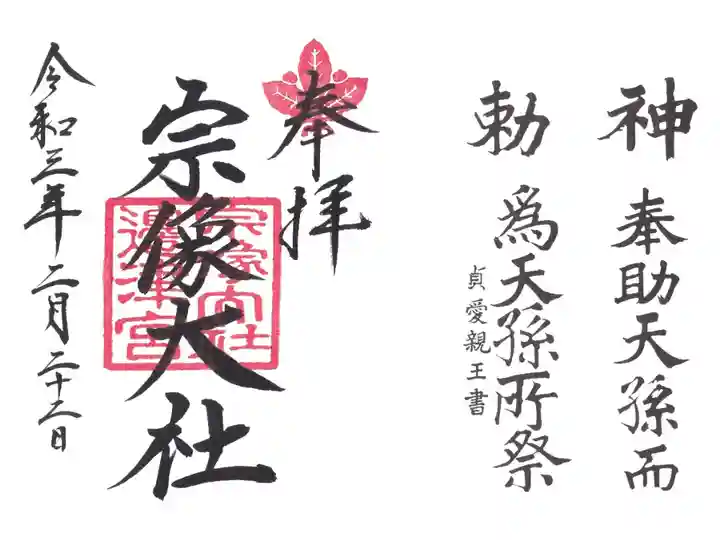 神勅
奉助天孫而
為天孫所祭
貞愛親王書
奉拝
宗像大社
宗像大社
邊津宮
令和三年二月二十二日